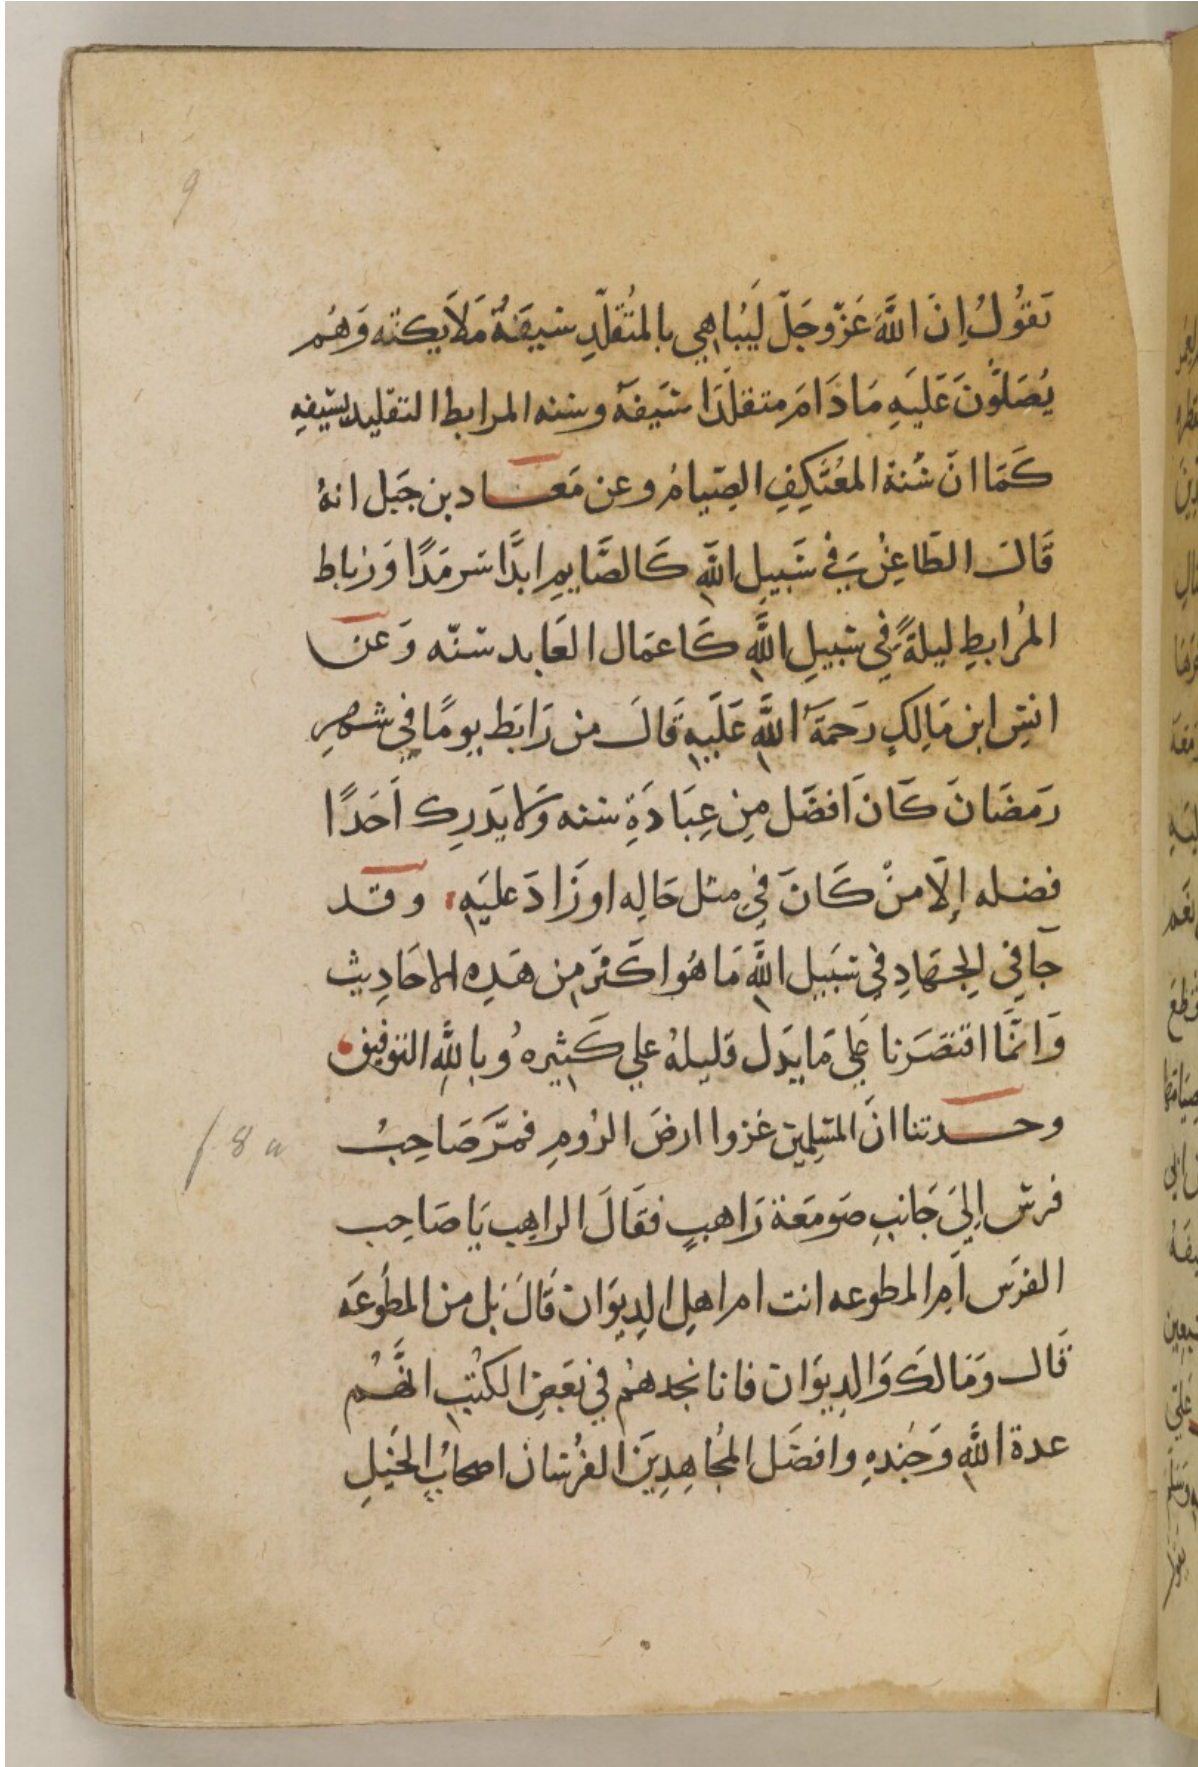 9
يَقُولُ اِنَّ اللَّهَ عَزّ وجَلّ لَيُباهِي بالمُتُقلّدِ سَيفَهُ مَلَايكته وَهُم
يُصَلُّونَ عَلَيهِ مَا دَامَ متقلّدًا سَيفهُ وسنه المرابط التقليد بسَيفهِ
كَمَا انّ سُنة المُعتَكِفِ الصِيامُ وعن مَعَاد بن جَبل انهُ
قَالَ الطَاعِنُ فِي سَبيلِ اللّهِ كَالصَّايمِ ابدًا سَرمَدًا وَرباط
المُرابطِ ليلةً فِي سَبيلِ اللَّهِ كَاعمَال العَابد سنّه وَعَن
انسِ ابن مَالِكٍ رَحمَة اللَّهِ عَلَيهِ قَالَ من رَابَط يومًا في شهرِ
رَمضَانَ كَانَ افضَل مِن عِبَادَةِ سنه وَلا يَدرِك اَحَدًا
فضله إلّا منْ كَانَ فِي مثل حَالِه او زَادَ عليَهِ وقد
جآ فِي الجِهَادِ في سَبيلِ اللَّهِ مَا هُو اكَثر مِن هَذِه الاحَادِيث
وَانَّمَا اقتصَرنا عَلي مَا يدَل قليلهُ علي كَثيره وُباللَّهِ التوفيق
وحدثنا انَّ المسَلِمين غزوا ارضَ الرُومِ فمَرَّ صَاحِبُ
f. 8 a
فرس اِليَ جَانبِ صَومَعَة رَاهبٍ فقَالَ الراهِب يَا صَاحِب
الفرَس اَمِن المطوعه انت ام اهلِ الدِيوَان قَالَ بَل من المطَوعَه
قَال وَمَا لكَ وَالدِيوَان فانا نجدهُم في بَعضِ الكتُبِ انَّهُم
عدة اللَّهِ وَجُندهِ وافضَل المجُاهِدِينَ الفُرسَان اصحَابُ الخَيلِ